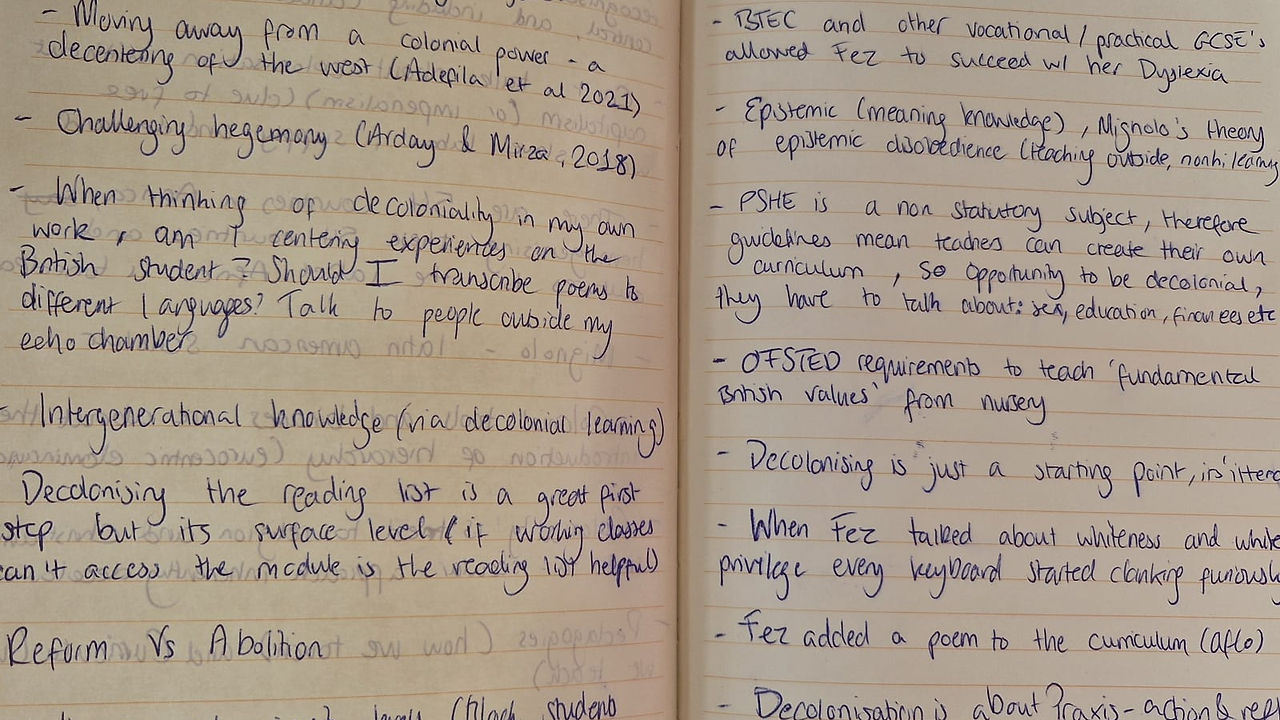 - Moving away from a colonial power - a
decentering of the west (Adefila et al 2021)
- Challenging hegemony (Arday & Mirza, 2018)
- When thinking of decoloniality in my own
work, am I centering experiences on the
British student? Should I transcribe poems to
different languages? Talk to people outside my
echo chamber
- Intergenerational knowledge (via decolonial learning)
Decolonising the reading list is a great first
step but its surface level (if working classes
can't access the module is the reading list helpful)
Reform Vs Abolition
(black student
- BTEC and other vocational / practical GCSE's
allowed Fez to succeed w/ her Dyslexia
- Epistemic (meaning knowledge), Mignolo's theory
of epistemic disobedience (teaching outside,
- PSHE is a non statutory subject, therefore
guidelines mean teachers can create their own
curriculum, so opportunity to be decolonial,
they have to talk about: sex, education, finances etc
- OFSTED requirements to teach 'fundamental
British values' from nursery
- Decolonising is just a starting point,
- When Fez talked about whiteness and white
privilege every keyboard started clanking furiously
- Fez added a poem to the curriculum (aflo)
- Decolonisation is about Praxis - action &